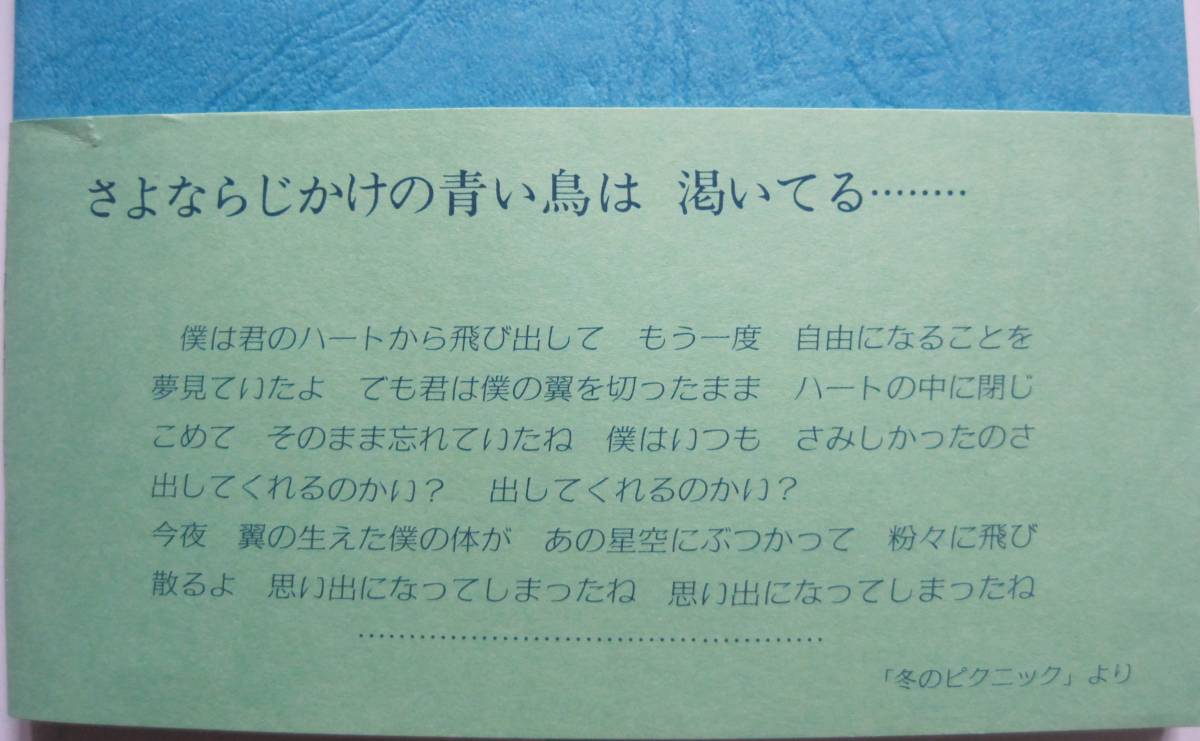 さよならじかけの青い鳥は　渇いてる………
僕は君のハートから飛び出して　もう一度　自由になることを
夢見ていたよ　でも君は僕の翼を切ったまま　ハートの中に閉じ
こめて　そのまま忘れていたね　僕はいつも　さみしかったのさ
出してくれるのかい？　出してくれるのかい？
今夜　翼の生えた僕の体が　あの星空にぶつかって　粉々に飛び
散るよ　思い出になってしまったね　思い出になってしまったね
……………………………………………
「冬のピクニック」より